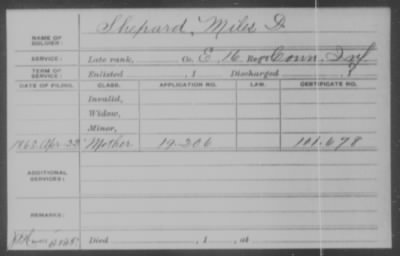 NAME OF SOLDIER: Shepard, Miles D.
SERVICE: Late rank, Co. E, Reg't Conn. Inf
TERM OF SERVICE: Enlisted , 1 Discharged , 1
DATE OF FILING. CLASS. APPLICATION NO. LAW. CERTIFICATE NO.
Invalid,
Widow,
Minor,
Apr 22 Mother 19.206 101.678
ADDITIONAL SERVICES:
REMARKS:
Died , 1 , at